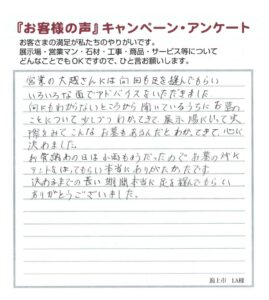 『お客様の声』キャンペーン・アンケート
お客さまの満足が私たちのやりがいです。
展示場・営業マン・石材・工事・商品・サービス等について
どんなことでもOKですので、ひと言お願いします。
営業の大隅さんには何回も足を運んでもらい
いろいろな面でアドバイスをいただきました
何にもわからないところから聞いているうちにお墓の
ことについて少しづつわかってきて、展示場に行って実
際をみてこんなお墓もあるんだとわかってきて、心に
決めました。
お骨納の日は小雨もようだったのでお墓の所に
テントをはってもらい本当にありがたかったです。
決めるまでの長い期間本当に足を運んでもらい
ありがとうございました。
潟上市 I.A様